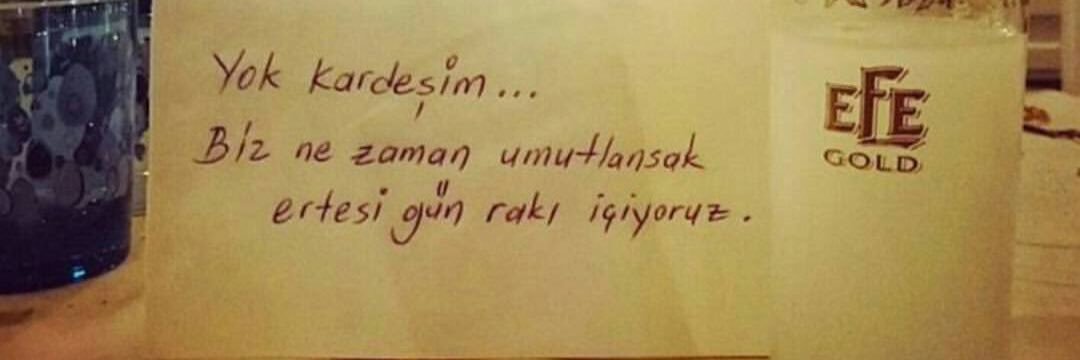 Yok kardeşim...
Biz ne zaman umutlansak
ertesi gün rakı içiyoruz.
EFE
GOLD